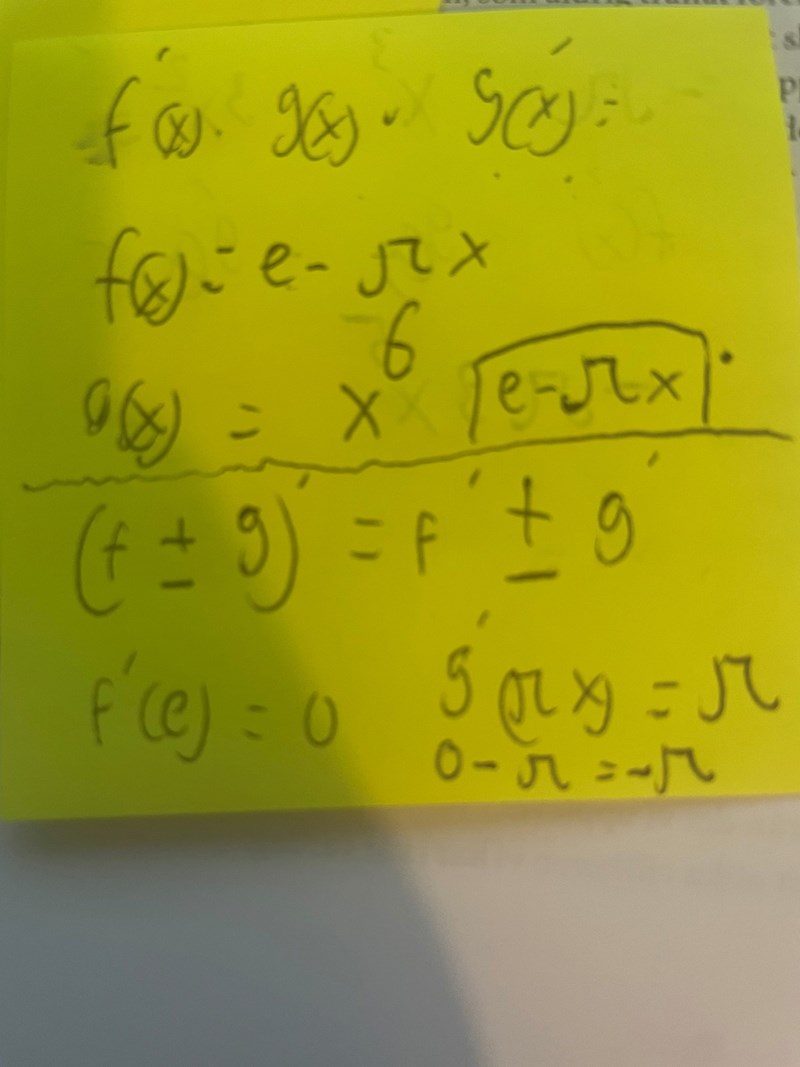 f'(x) · g(x) · g(x)' =
f(x) = e - πx
g(x) = x⁶ e-πx ·
(f ± g)' = f' ± g'
f'(e) = 0 g'(πx) = π
0 - π = -π